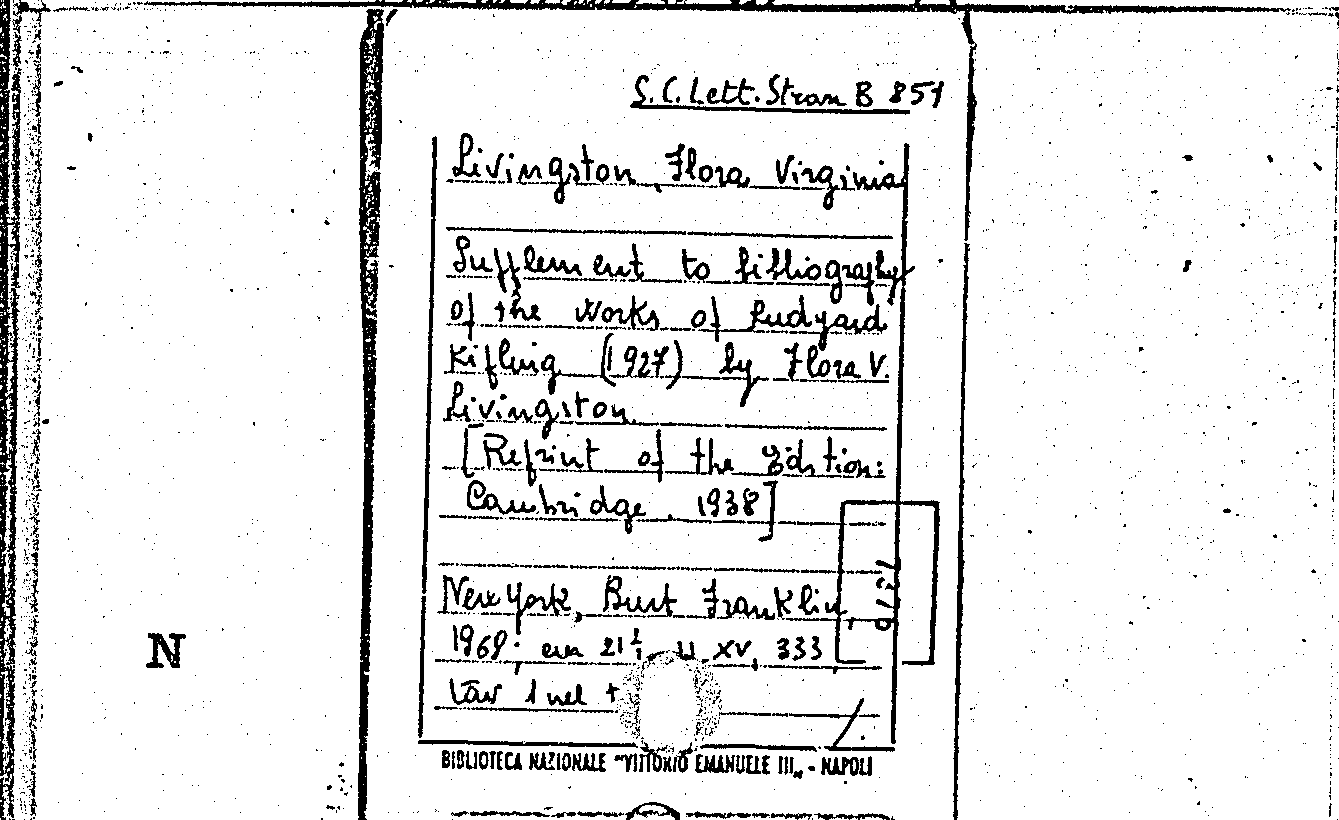 S.C. Lett. Stran B 851
Livingston, Flora Virginia
Supplement to bibliography
of the Works of Rudyard
Kipling (1927) by Flora V.
Livingston.
[Reprint of the Edition:
Cambridge. 1938]
New York, Burt Franklin,
1969; cm 21½ XV, 333,
tav 1 nel
N
BIBLIOTECA NAZIONALE "VITTORIO EMANUELE III„ - NAPOLI